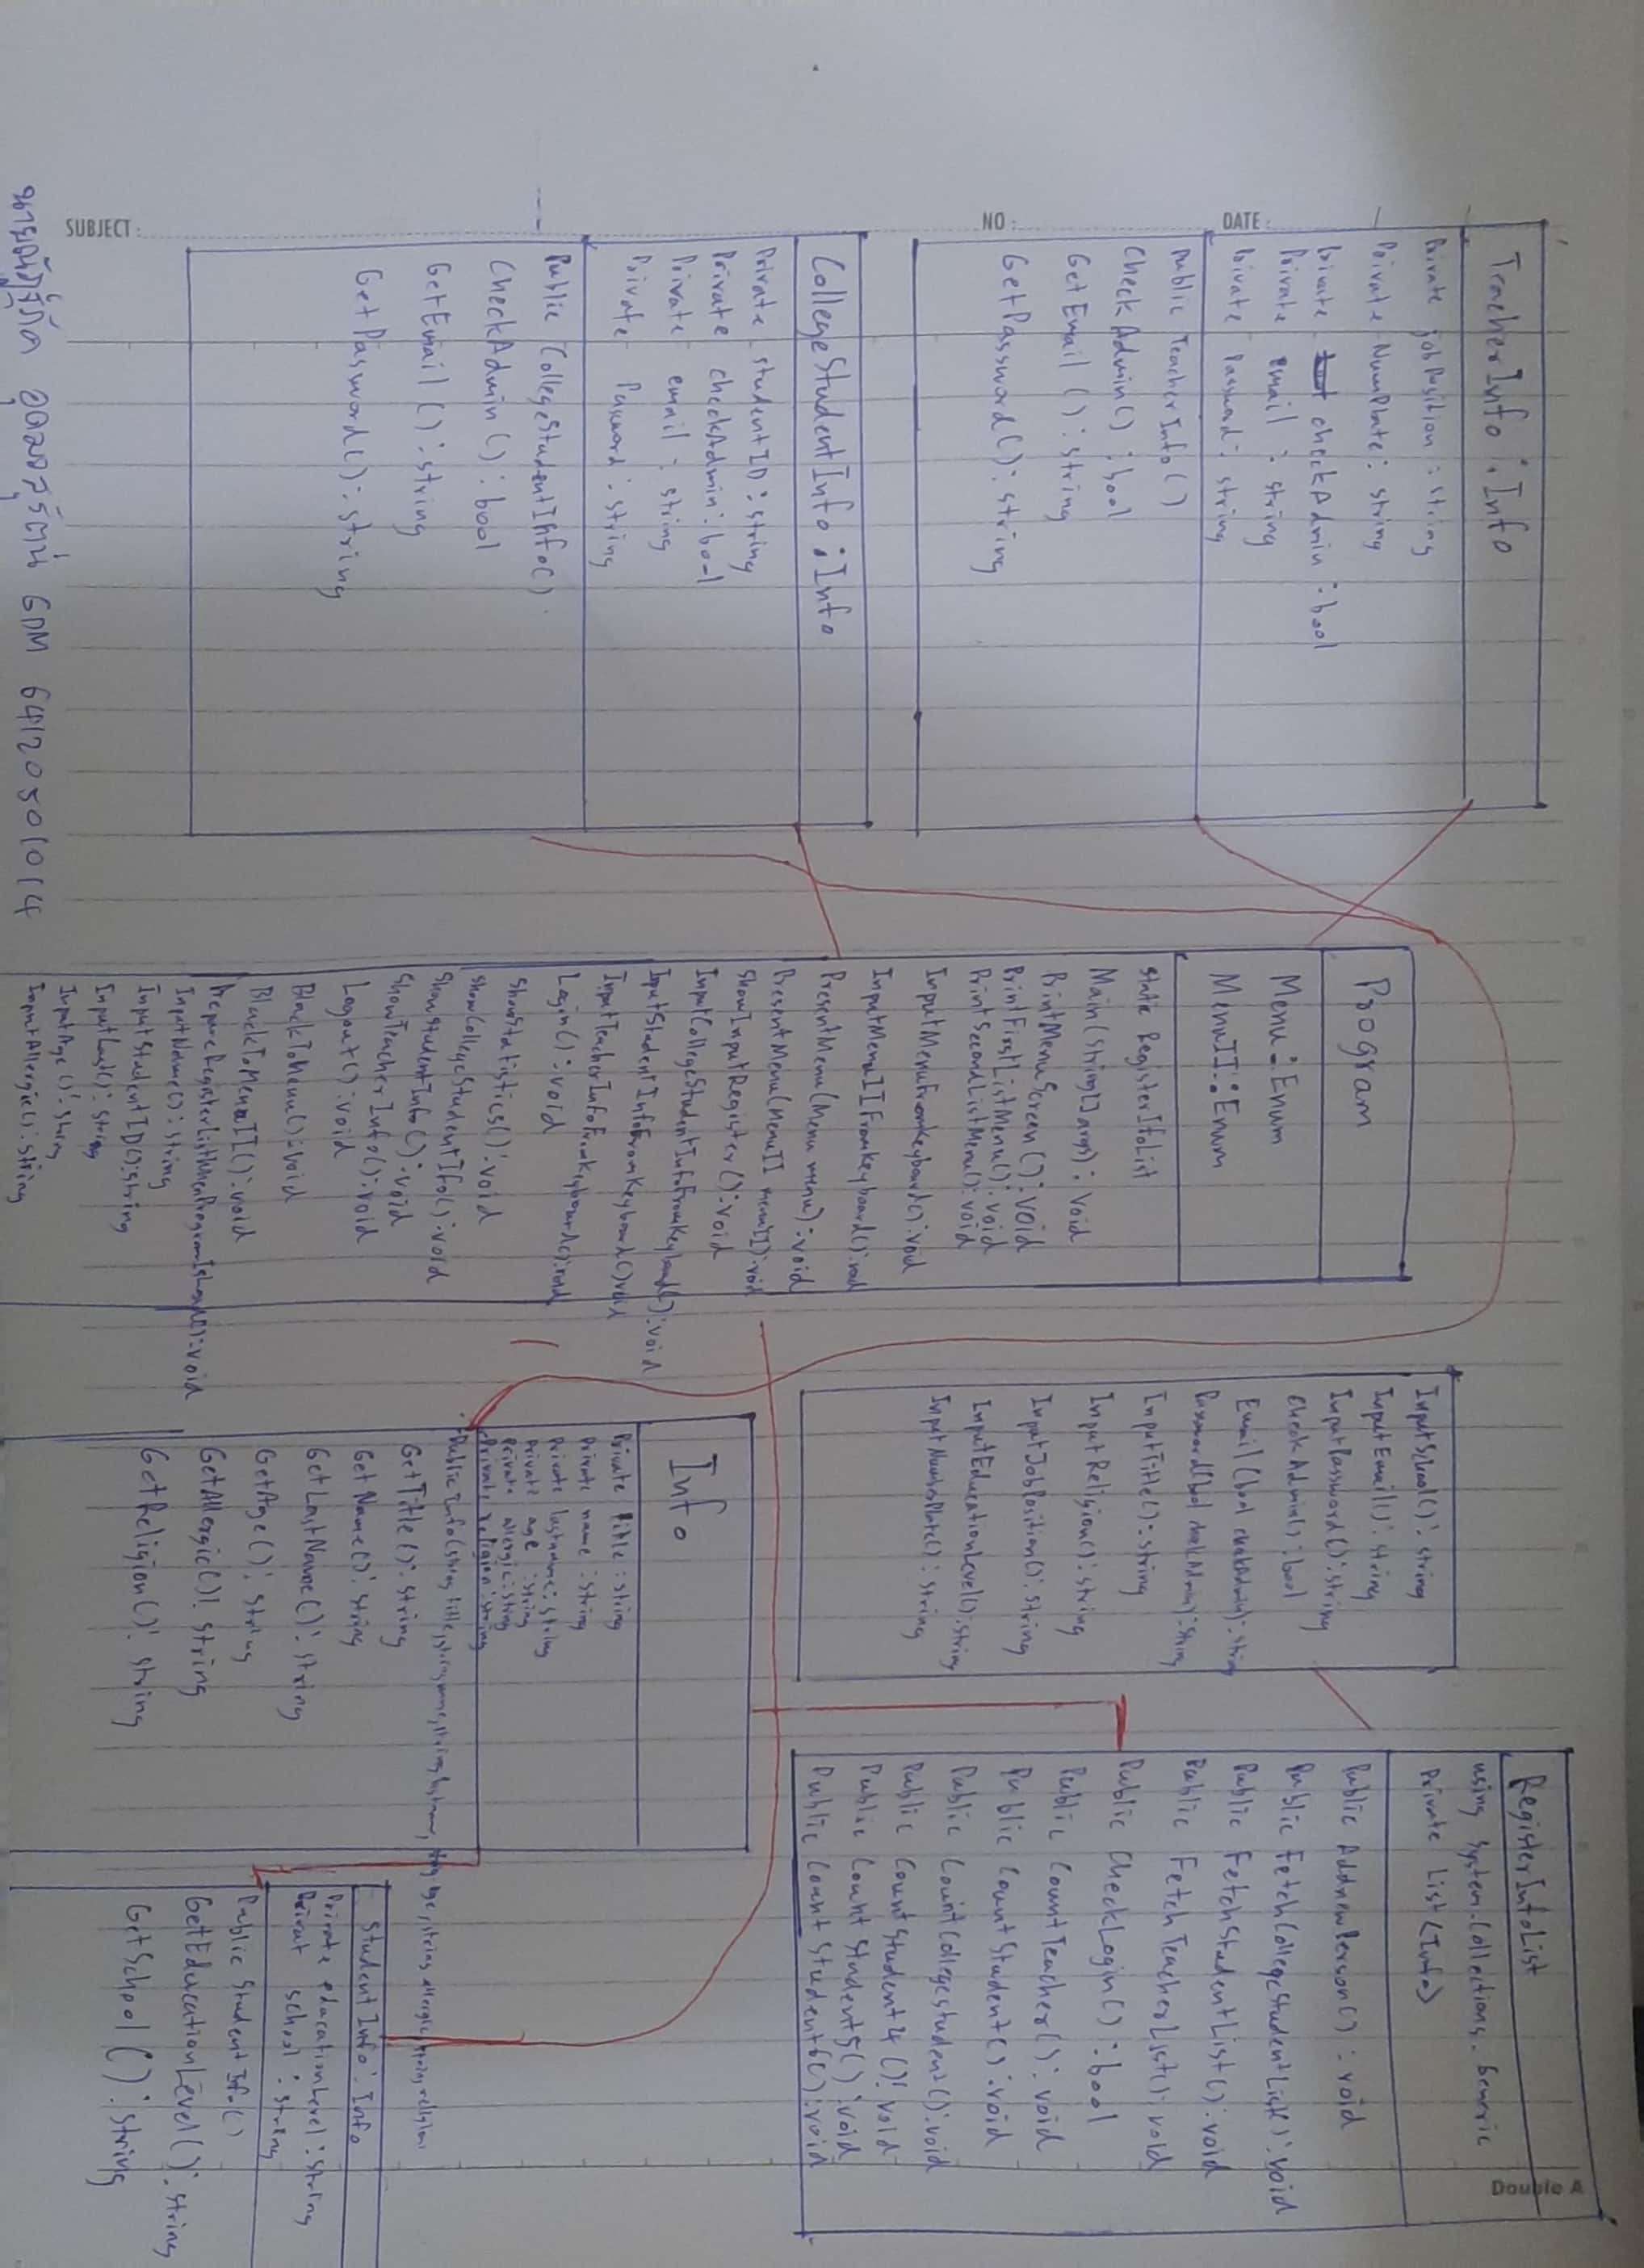 SUBJECT :
NO :
DATE :
TeacherInfo : Info
Private jobPosition : string
Private NumPlate : string
Private checkAdmin : bool
Private email : string
Private Password : string
Public TeacherInfo()
CheckAdmin() : bool
GetEmail() : string
GetPassword() : string
CollegeStudentInfo : Info
Private studentID : string
Private checkAdmin : bool
Private email : string
Private Password : string
Public CollegeStudentInfo()
CheckAdmin() : bool
GetEmail() : string
GetPassword() : string
GDM 64120501014
Program
Menu : Enum
MenuII : Enum
Static RegisterIfoList
Main(string[] args) : Void
PrintMenuScreen() : void
PrintFirstListMenu() : void
PrintSecondListMenu() : void
InputMenuFromKeyboard() : void
InputMenuIIFromKeyboard() : void
PresentMenu(Menu menu) : void
PresentMenu(MenuII menuII) : void
ShowInputRegister() : void
InputCollegeStudentInfoFromKeyboard
InputStudentInfoFromKeyboard() : void
InputTeacherInfoFromKeyboard() void
Login() : void
ShowStatistics() : void
ShowCollegeStudentIfo() : void
ShowStudentInfo() : void
ShowTeacherInfo() : void
Logout() : void
BackToMenu() : void
BackToMenuII() : void
: void
InputName() : string
InputStudentID() : string
InputLast() : string
InputAge() : string
InputAllergic() : string
InputSchool() : string
InputEmail() : string
InputPassword() : string
CheckAdmin() : bool
Email(bool checkAdmin) : string
Password(bool checkAdmin) : string
InputTitle() : string
InputReligion() : string
InputJobPosition() : string
InputEducationLevel() : string
InputNumberPlate() : string
Info
Private title : string
Private name : string
Private lastname : string
Private age : string
Private allergic : string
Private religion : string
Public Info(string title, string name, string lastname, string age, string allergic, string religion
GetTitle() : string
GetName() : string
GetLastName() : string
GetAge() : string
GetAllergic() : string
GetReligion() : string
RegisterInfoList
using System.Collections.Generic
Private List<Info>
Public AddnewPerson() : void
Public FetchCollegeStudentList() : void
Public FetchStudentList() : void
Public FetchTeacherList() : void
Public CheckLogin() : bool
Public CountTeacher() : void
Public CountStudent() : void
Public CountCollegestudent() : void
Public CountStudent4() : void
Public CountStudent5() : void
Public CountStudent6() : void
StudentInfo : Info
Private educationLevel : string
Privat school : string
Public StudentInfo()
GetEducationLevel() : string
GetSchool() : string
Double A